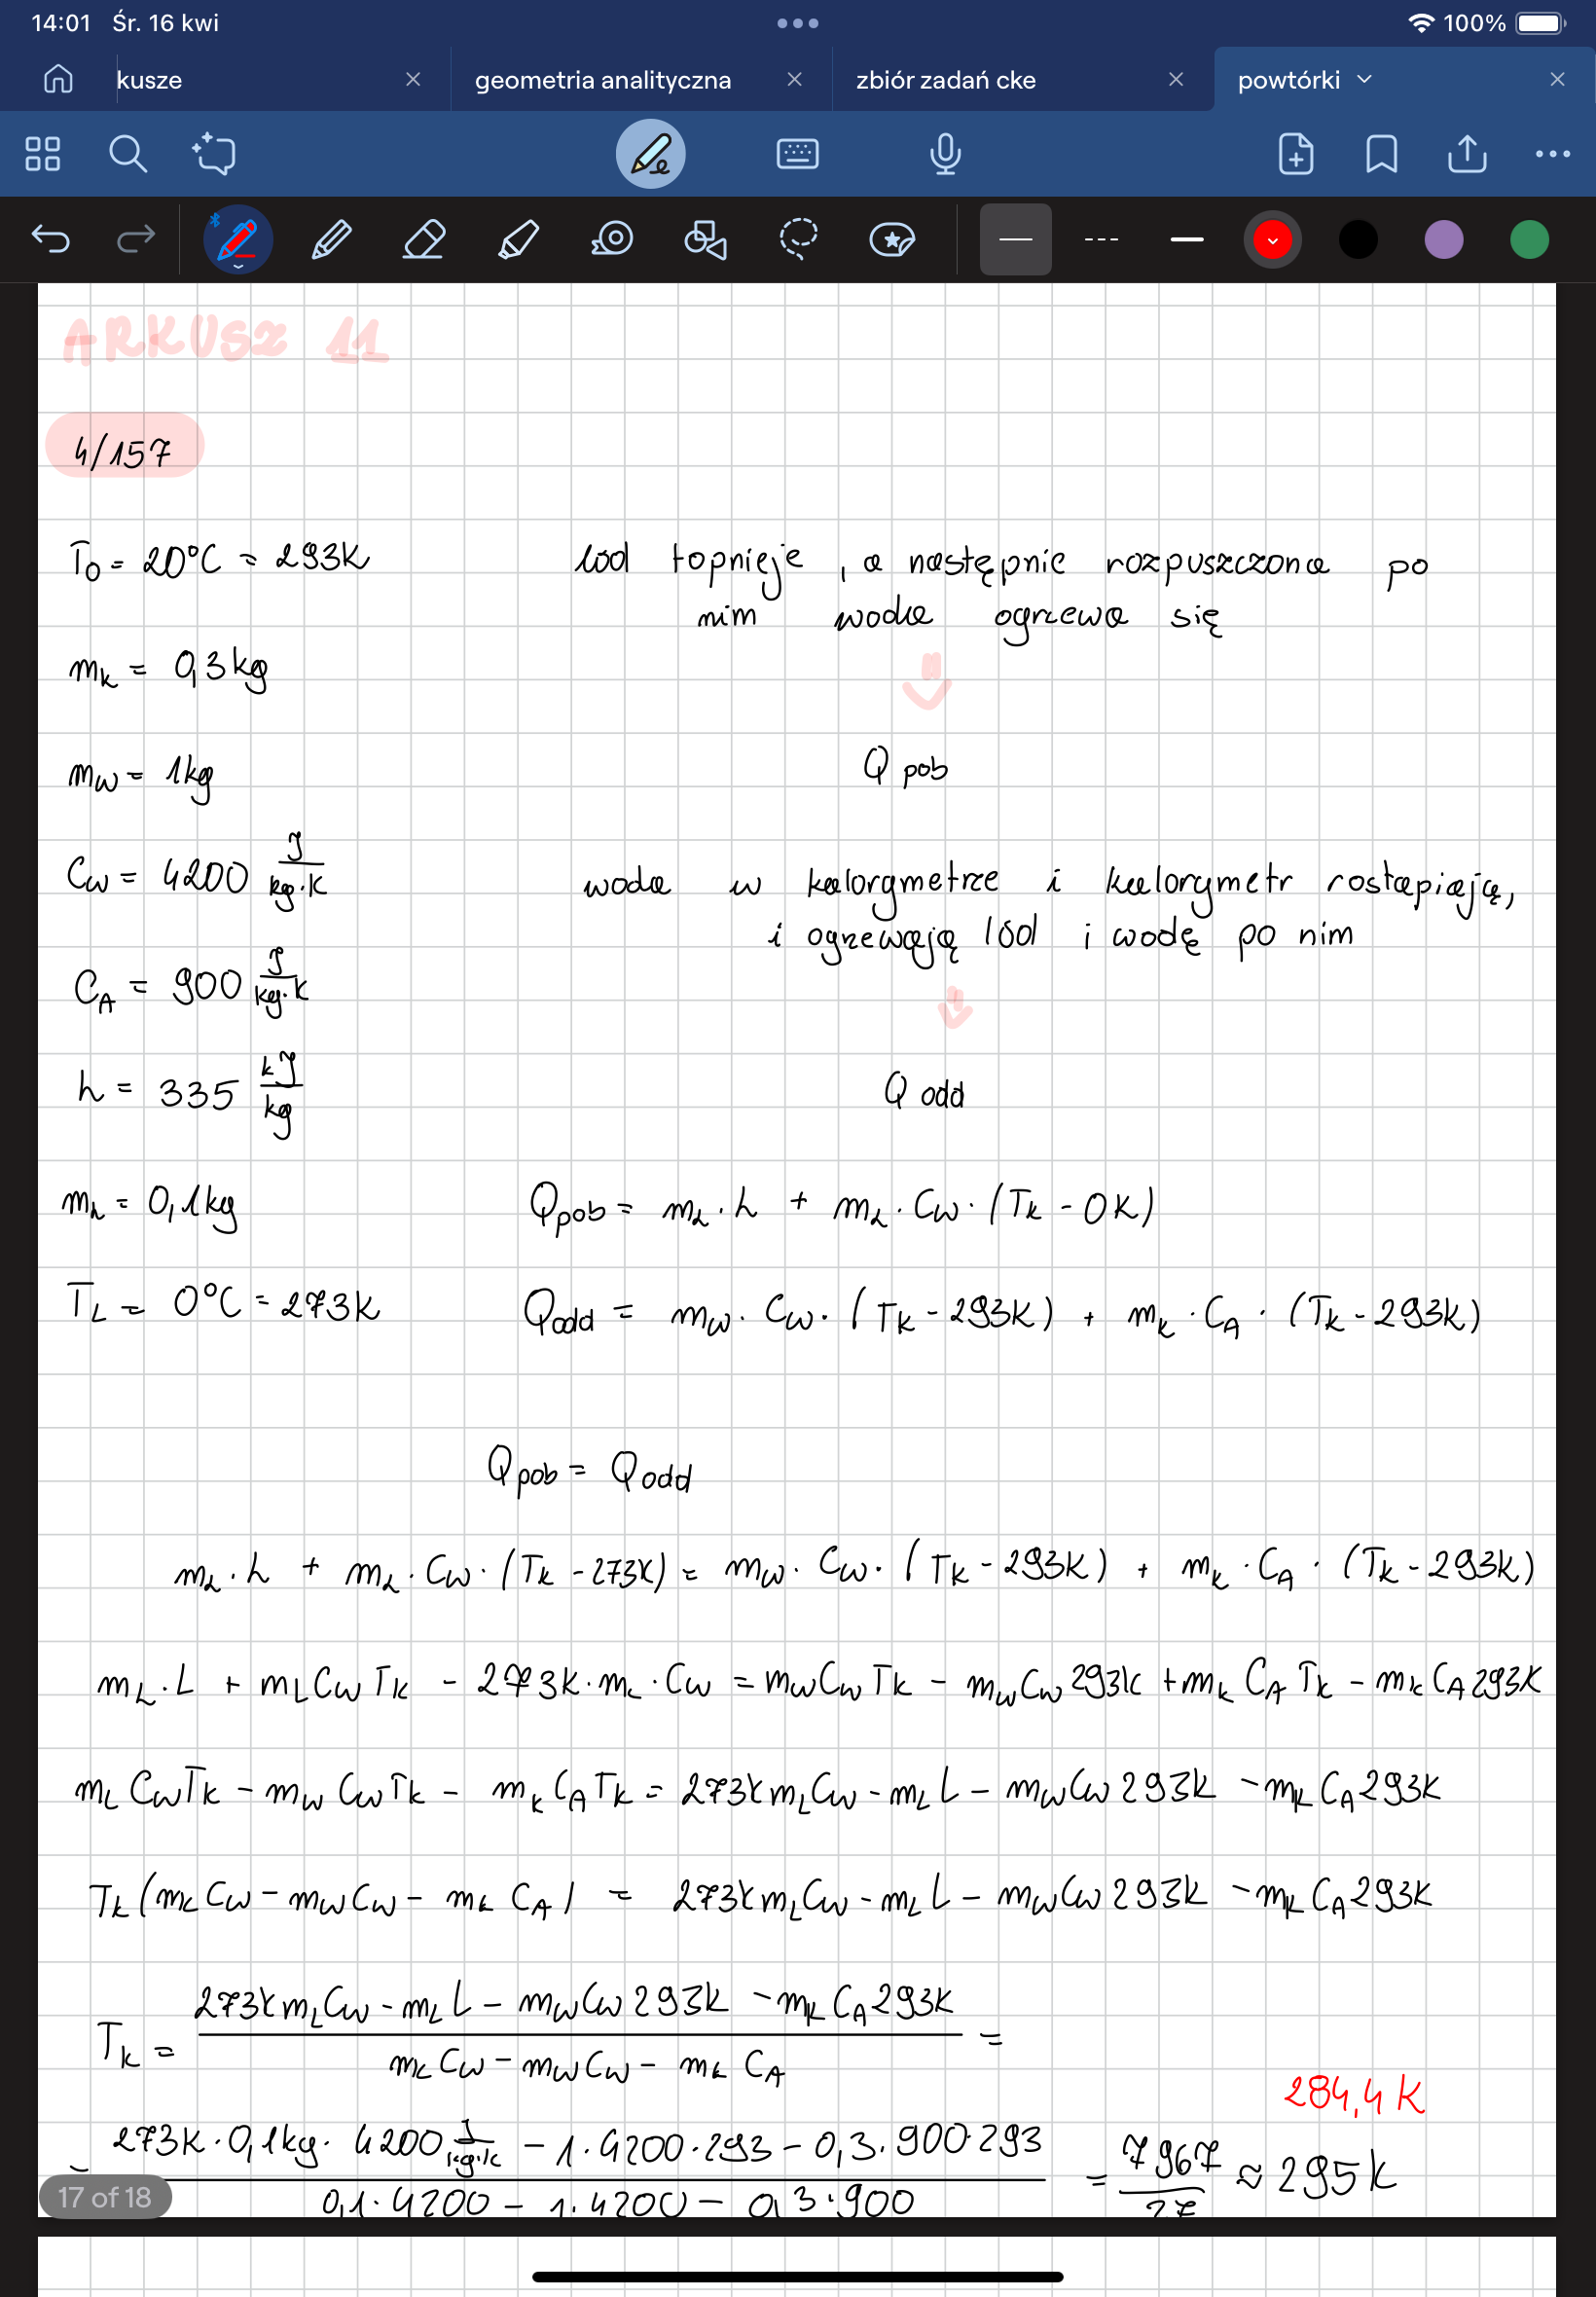 14:01 Śr. 16 kwi
100%
kusze
geometria analityczna
zbiór zadań cke
powtórki
ARKUSZ 11
4/157
T₀ = 20°C = 293K
lód topnieje, a następnie rozpuszczona po
nim woda ogrzewa się
m_k = 0,3 kg
⇓
m_w = 1kg
Q pob
C_w = 4200 J/kg·K
woda w kalorymetrze i kalorymetr rostapiają,
i ogrzewają lód i wodę po nim
C_A = 900 J/kg·K
⇓
h = 335 kJ/kg
Q odd
m_L = 0,1kg
Q_pob = m_L · L + m_L · C_w · (T_k - 0K)
T_L = 0°C = 273K
Q_odd = m_w · C_w · (T_k - 293K) + m_k · C_A · (T_k - 293K)
Q_pob = Q_odd
m_L · L + m_L · C_w · (T_k - 273K) = m_w · C_w · (T_k - 293K) + m_k · C_A · (T_k - 293K)
m_L · L + m_L C_w T_k - 273K · m_L · C_w = m_w C_w T_k - m_w C_w 293K + m_k C_A T_k - m_k C_A 293K
m_L C_w T_k - m_w C_w T_k - m_k C_A T_k = 273K m_L C_w - m_L L - m_w C_w 293K - m_k C_A 293K
T_k (m_L C_w - m_w C_w - m_k C_A) = 273K m_L C_w - m_L L - m_w C_w 293K - m_k C_A 293K
T_k = (273K m_L C_w - m_L L - m_w C_w 293K - m_k C_A 293K) / (m_L C_w - m_w C_w - m_k C_A) =
284,4 K
= (273K · 0,1kg · 4200 J/kg·K - 1 · 4200 · 293 - 0,3 · 900 · 293) / (0,1 · 4200 - 1 · 4200 - 0,3 · 900) = 7967/27 ≈ 295K
17 of 18